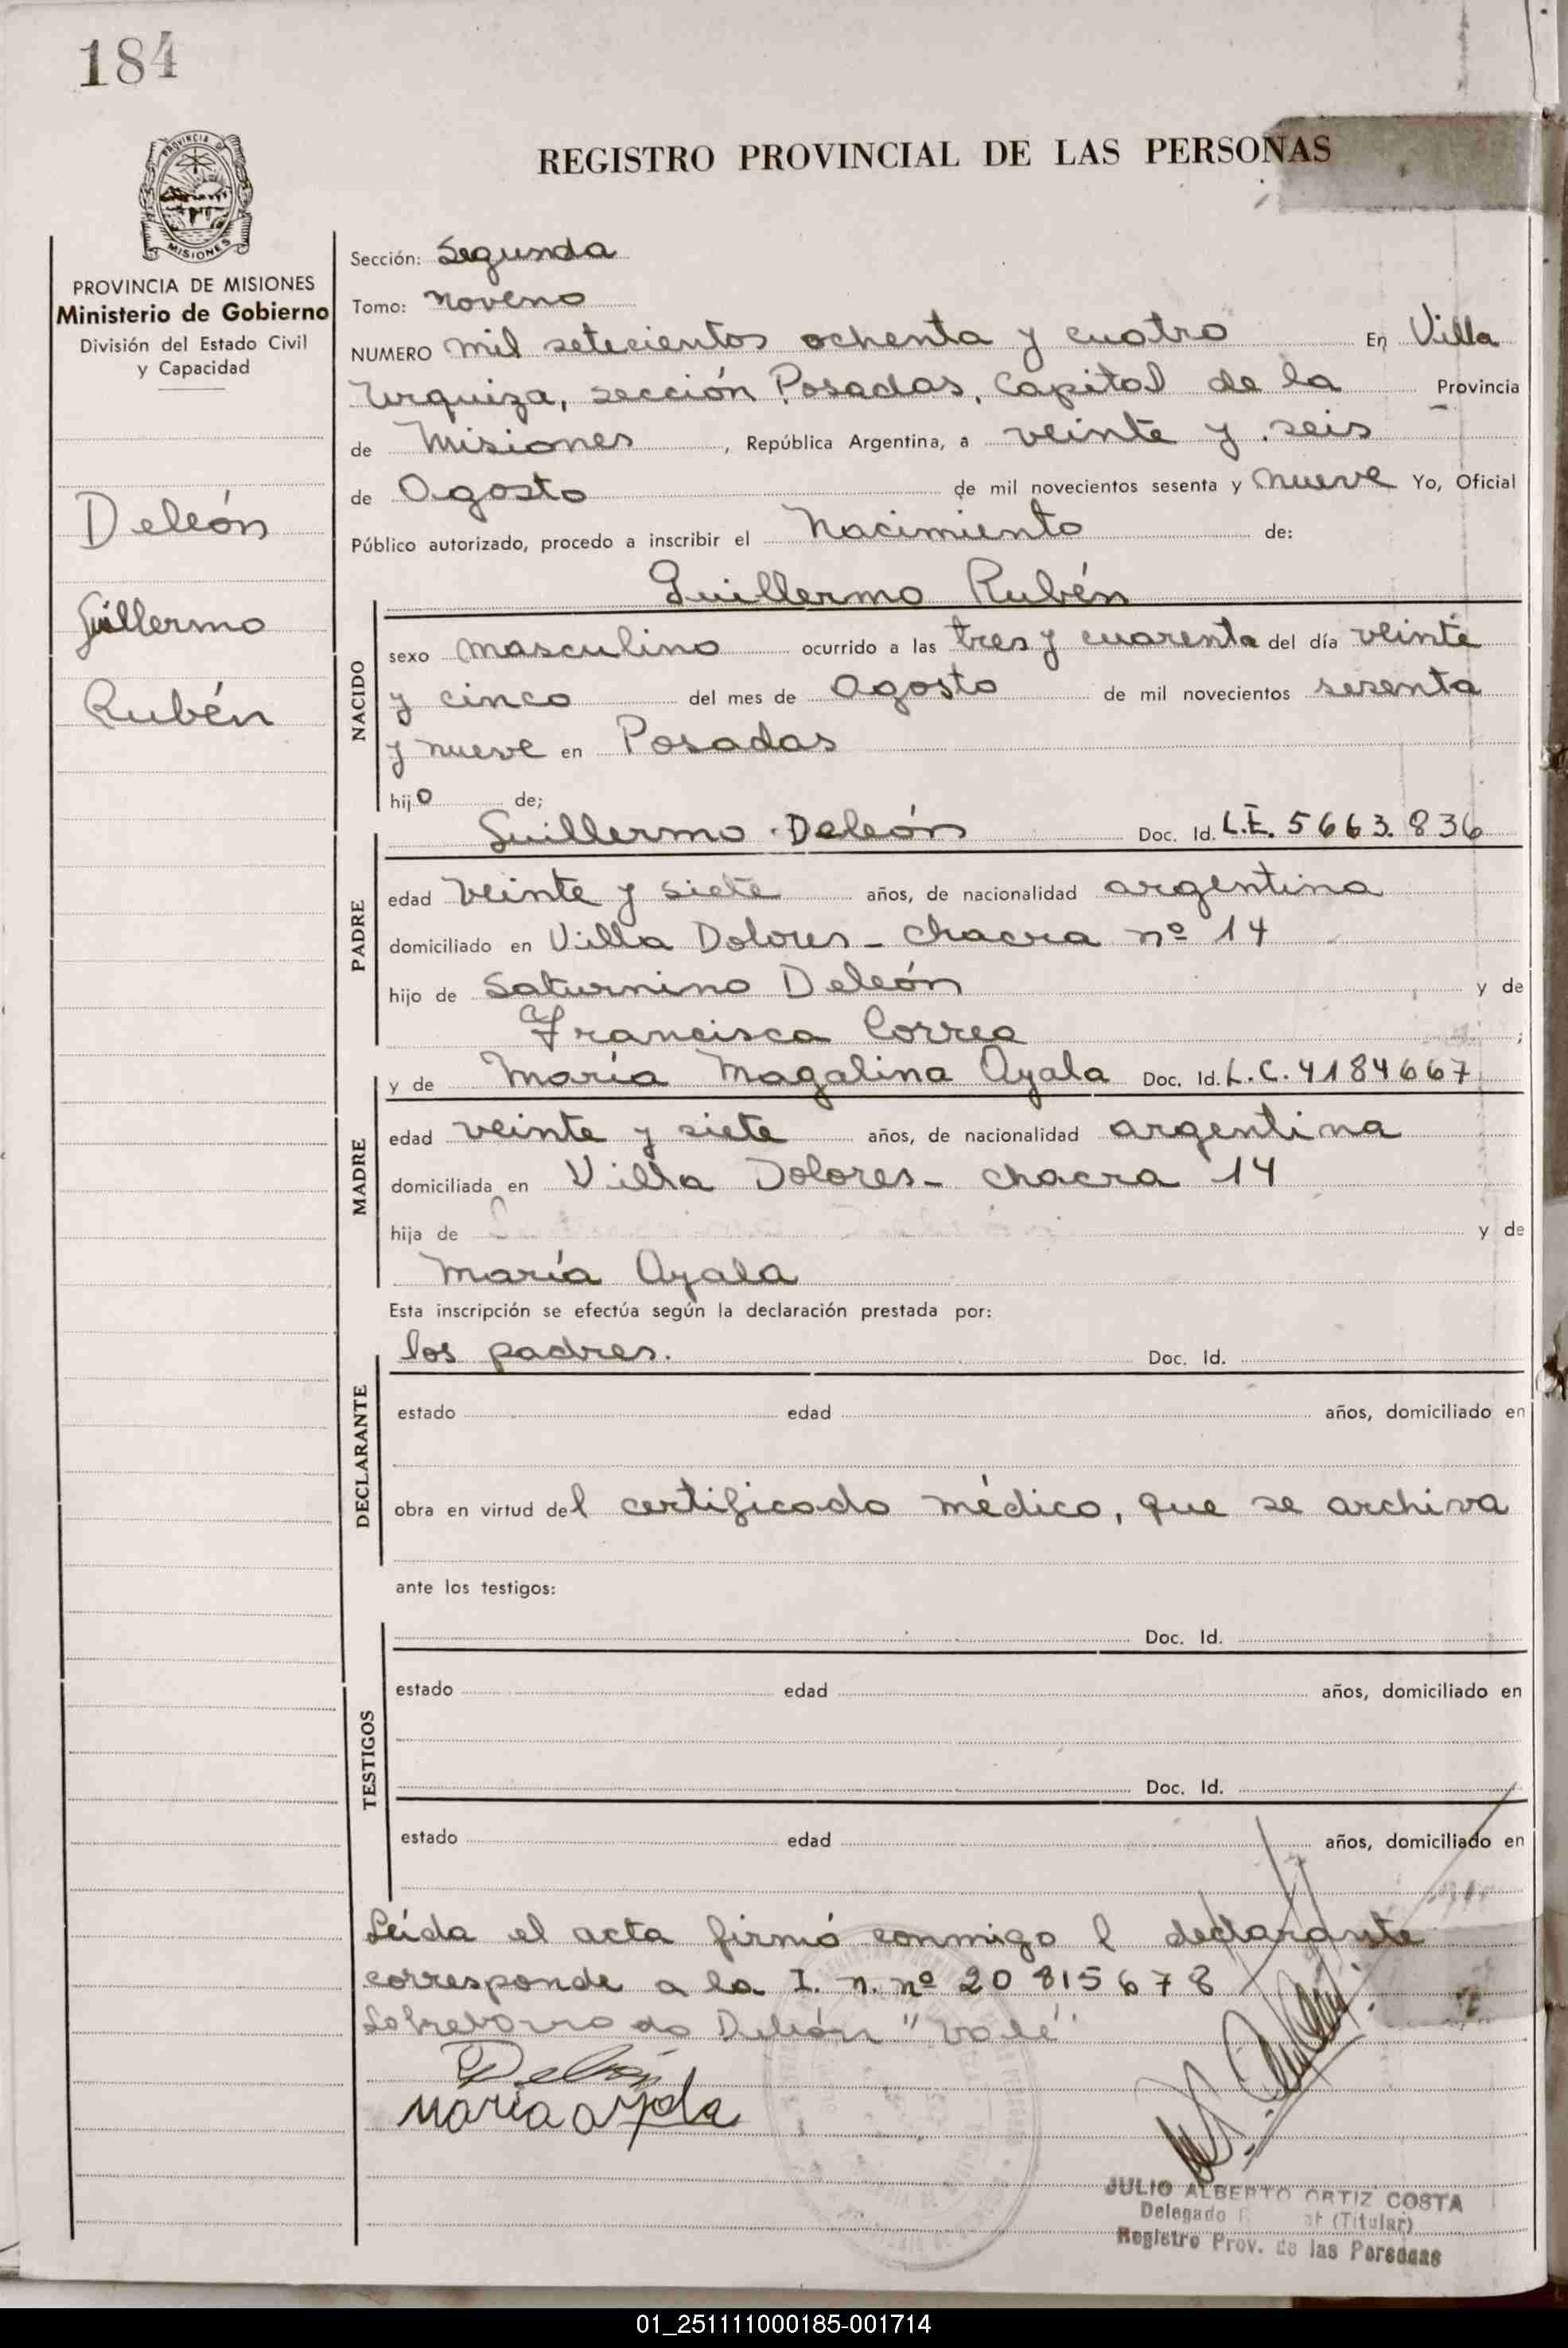 184
PROVINCIA DE
MISIONES
PROVINCIA DE MISIONES
Ministerio de Gobierno
División del Estado Civil
y Capacidad
Deleón
Guillermo
Rubén
REGISTRO PROVINCIAL DE LAS PERSONAS
Sección: Segunda
Tomo: noveno
NUMERO mil setecientos ochenta y cuatro En Villa
Urquiza, sección Posadas, Capital de la Provincia
de Misiones, República Argentina, a veinte y seis
de Agosto de mil novecientos sesenta y nueve Yo, Oficial
Público autorizado, procedo a inscribir el Nacimiento de:
Guillermo Rubén
NACIDO
sexo masculino ocurrido a las tres y cuarenta del día veinte
y cinco del mes de Agosto de mil novecientos sesenta
y nueve en Posadas
hijo de;
Guillermo Deleón Doc. Id. L.E. 5663.836
PADRE
edad veinte y siete años, de nacionalidad argentina
domiciliado en Villa Dolores - chacra nº 14
hijo de Saturnino Deleón y de
Francisca Correa ;
y de María Magalina Ayala Doc. Id. L.C. 4184667
MADRE
edad veinte y siete años, de nacionalidad argentina
domiciliada en Villa Dolores - chacra 14
hija de y de
María Ayala
Esta inscripción se efectúa según la declaración prestada por:
los padres. Doc. Id.
DECLARANTE
estado edad años, domiciliado en
obra en virtud del certificado médico, que se archiva
ante los testigos:
Doc. Id.
TESTIGOS
estado edad años, domiciliado en
Doc. Id.
estado edad años, domiciliado en
Leída el acta firmó conmigo l declarante
corresponde a la I. n. nº 20 815678
Sobreborrado Deleón "vale"
Deleón
maria ayala
JULIO ALBERTO ORTIZ COSTA
Delegado (Titular)
Registro Prov. de las Personas
01_251111000185-001714